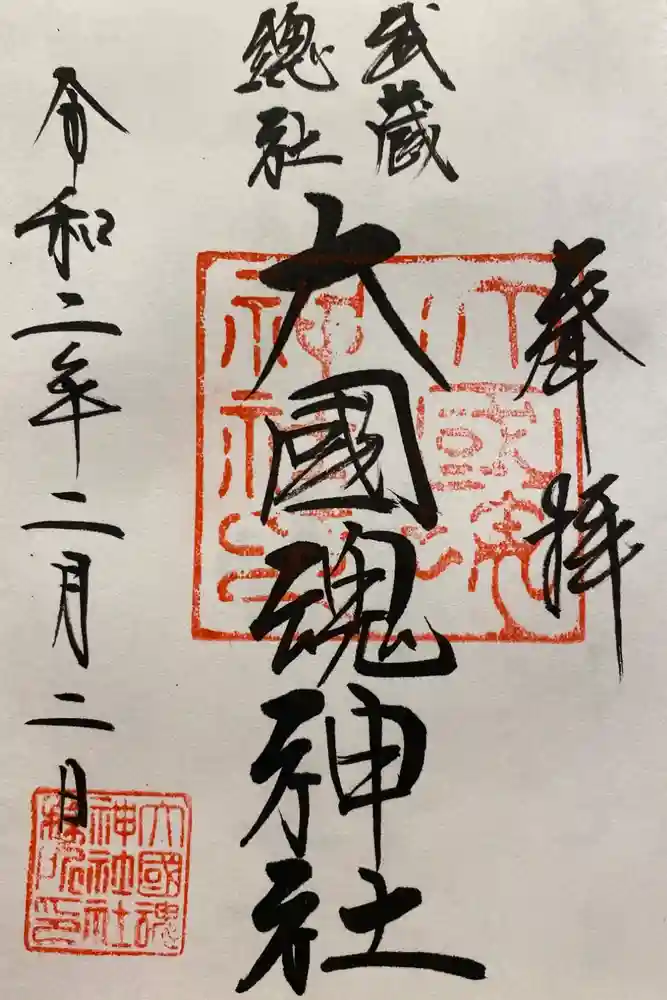 奉拝
武蔵
總社
大國魂神社
令和二年二月二日
大國魂
神社印
大國魂
神社社
務所印